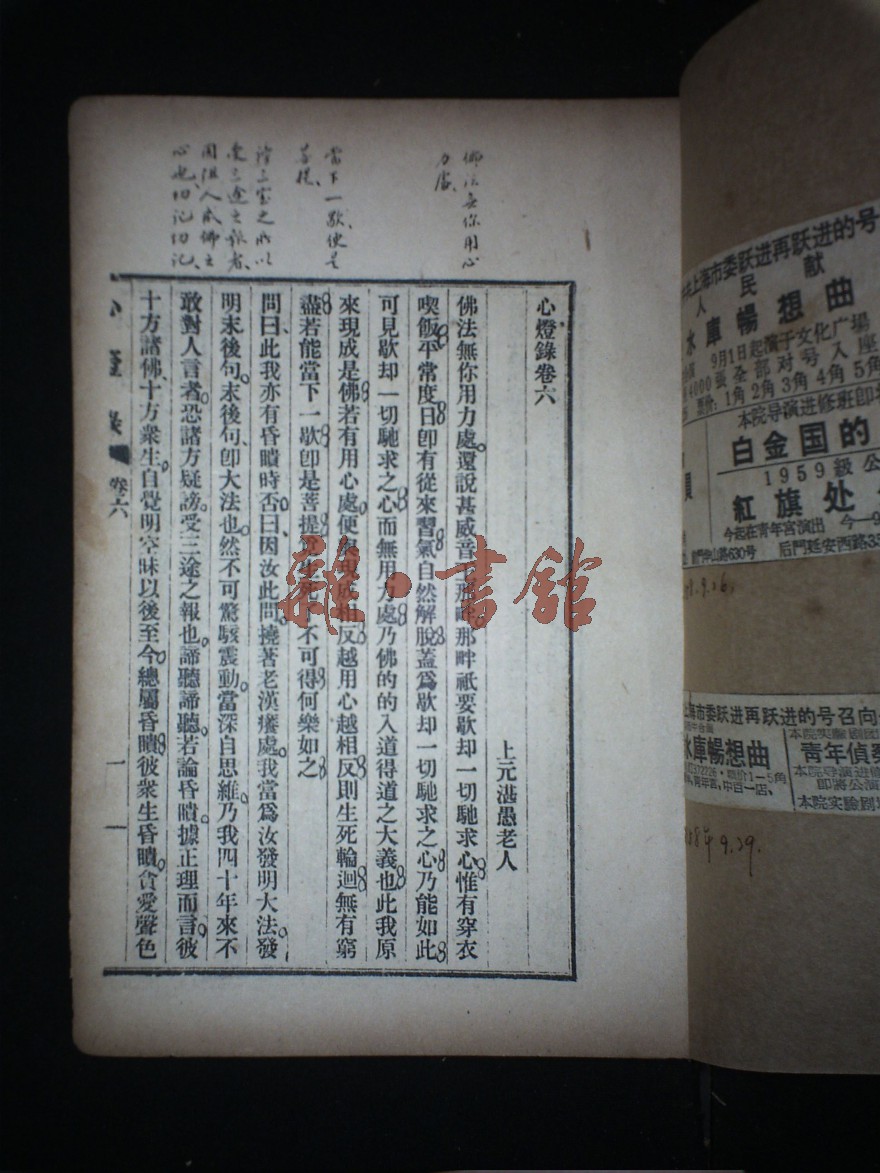 心燈錄卷六
上元湛愚老人
佛法無你用力處。還說甚威音王那畔那畔祇要歇却一切馳求心惟有穿衣
喫飯平常度日即有從來習氣自然解脫蓋爲歇却一切馳求之心乃能如此
可見歇却一切馳求之心而無用力處乃佛的的入道得道之大義也此我原
來現成是佛若有用心處便與現成相反越用心越相反則生死輪迴無有窮
盡若能當下一歇卽是菩提覓生死不可得何樂如之
問曰、此我亦有昏瞶時否。曰因汝此問撓著老漢癢處。我當爲汝發明大法發
明末後句。末後句、卽大法也。然不可驚駭震動。當深自思維。乃我四十年來不
敢對人言者。恐諸方疑謗。受三途之報也。諦聽諦聽。若論昏瞶。據正理而言。彼
十方諸佛、十方衆生。自覺明空昧以後至今。總屬昏瞶。彼衆生昏瞶。貪愛聲色
心燈錄 卷六 一一
佛法無你用心
力處
當下一歇便是
菩提、
受三途之報者、
心也、切記切記、
上海市委跃进再跃进的号
人民献
水庫暢想曲
9月1日起演于文化广場
4000張全部对号入座
票价：1角2角3角4角5角
本院导演进修班即将
白金国的
1959級公
紅旗处
今起在青年宮演出
后門延安西路35
9.26.
上海市委跃进再跃进的号召向
水庫暢想曲
1—5角
青年偵察
本院导演进修班
即將公演
本院实驗剧
58年9.29.
雜·書館